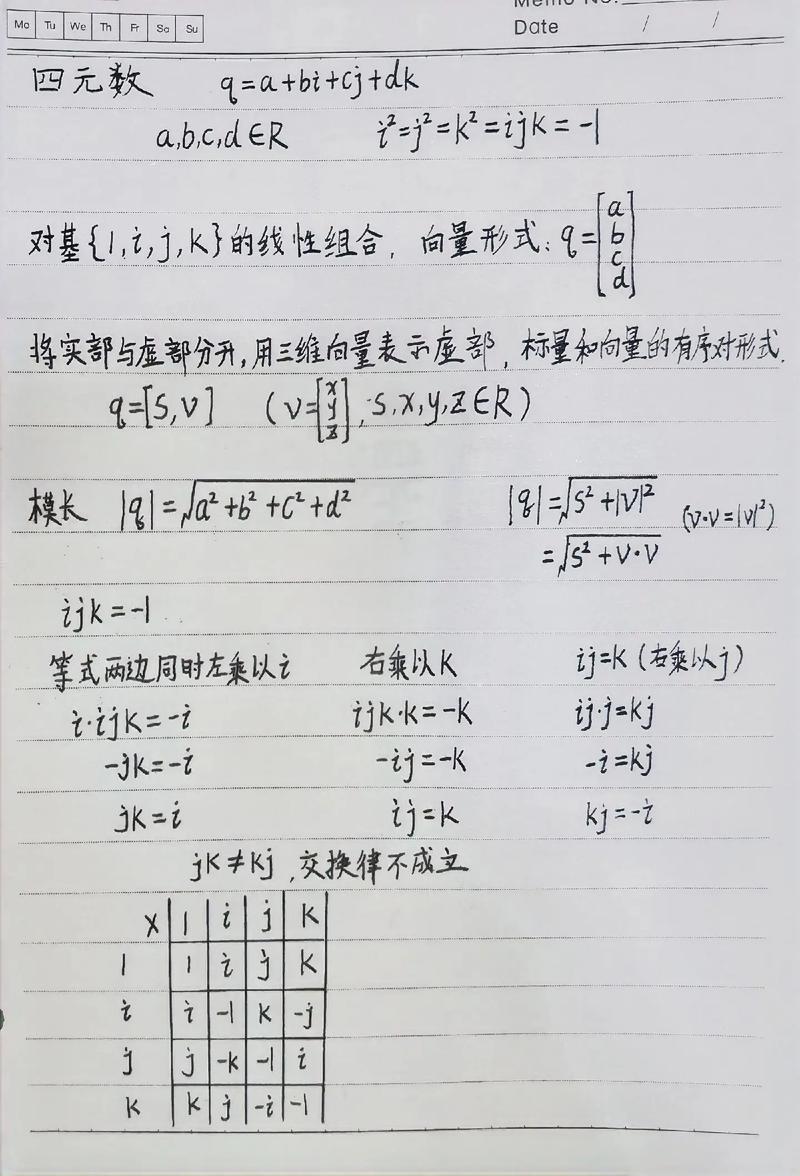 Mo Tu We Th Fr Sa Su
Memo No.
Date / /
四元数 q=a+bi+cj+dk
a,b,c,d∈R i²=j²=k²=ijk=-1
对基{1,i,j,k}的线性组合, 向量形式: q=[a b c d]
将实部与虚部分开,用三维向量表示虚部, 标量和向量的有序对形式.
q=[s,v] (v=[x y z], s,x,y,z∈R)
模长 |q|=√(a²+b²+c²+d²) |q|=√(s²+|v|²) (v·v=|v|²)
=√(s²+v·v)
ijk=-1
等式两边同时左乘以i 右乘以k ij=k(右乘以j)
i·ijk=-i ijk·k=-k ij·j=kj
-jk=-i -ij=-k -i=kj
jk=i ij=k kj=-i
jk≠kj,交换律不成立
× 1 i j k
1 1 i j k
i i -1 k -j
j j -k -1 i
k k j -i -1